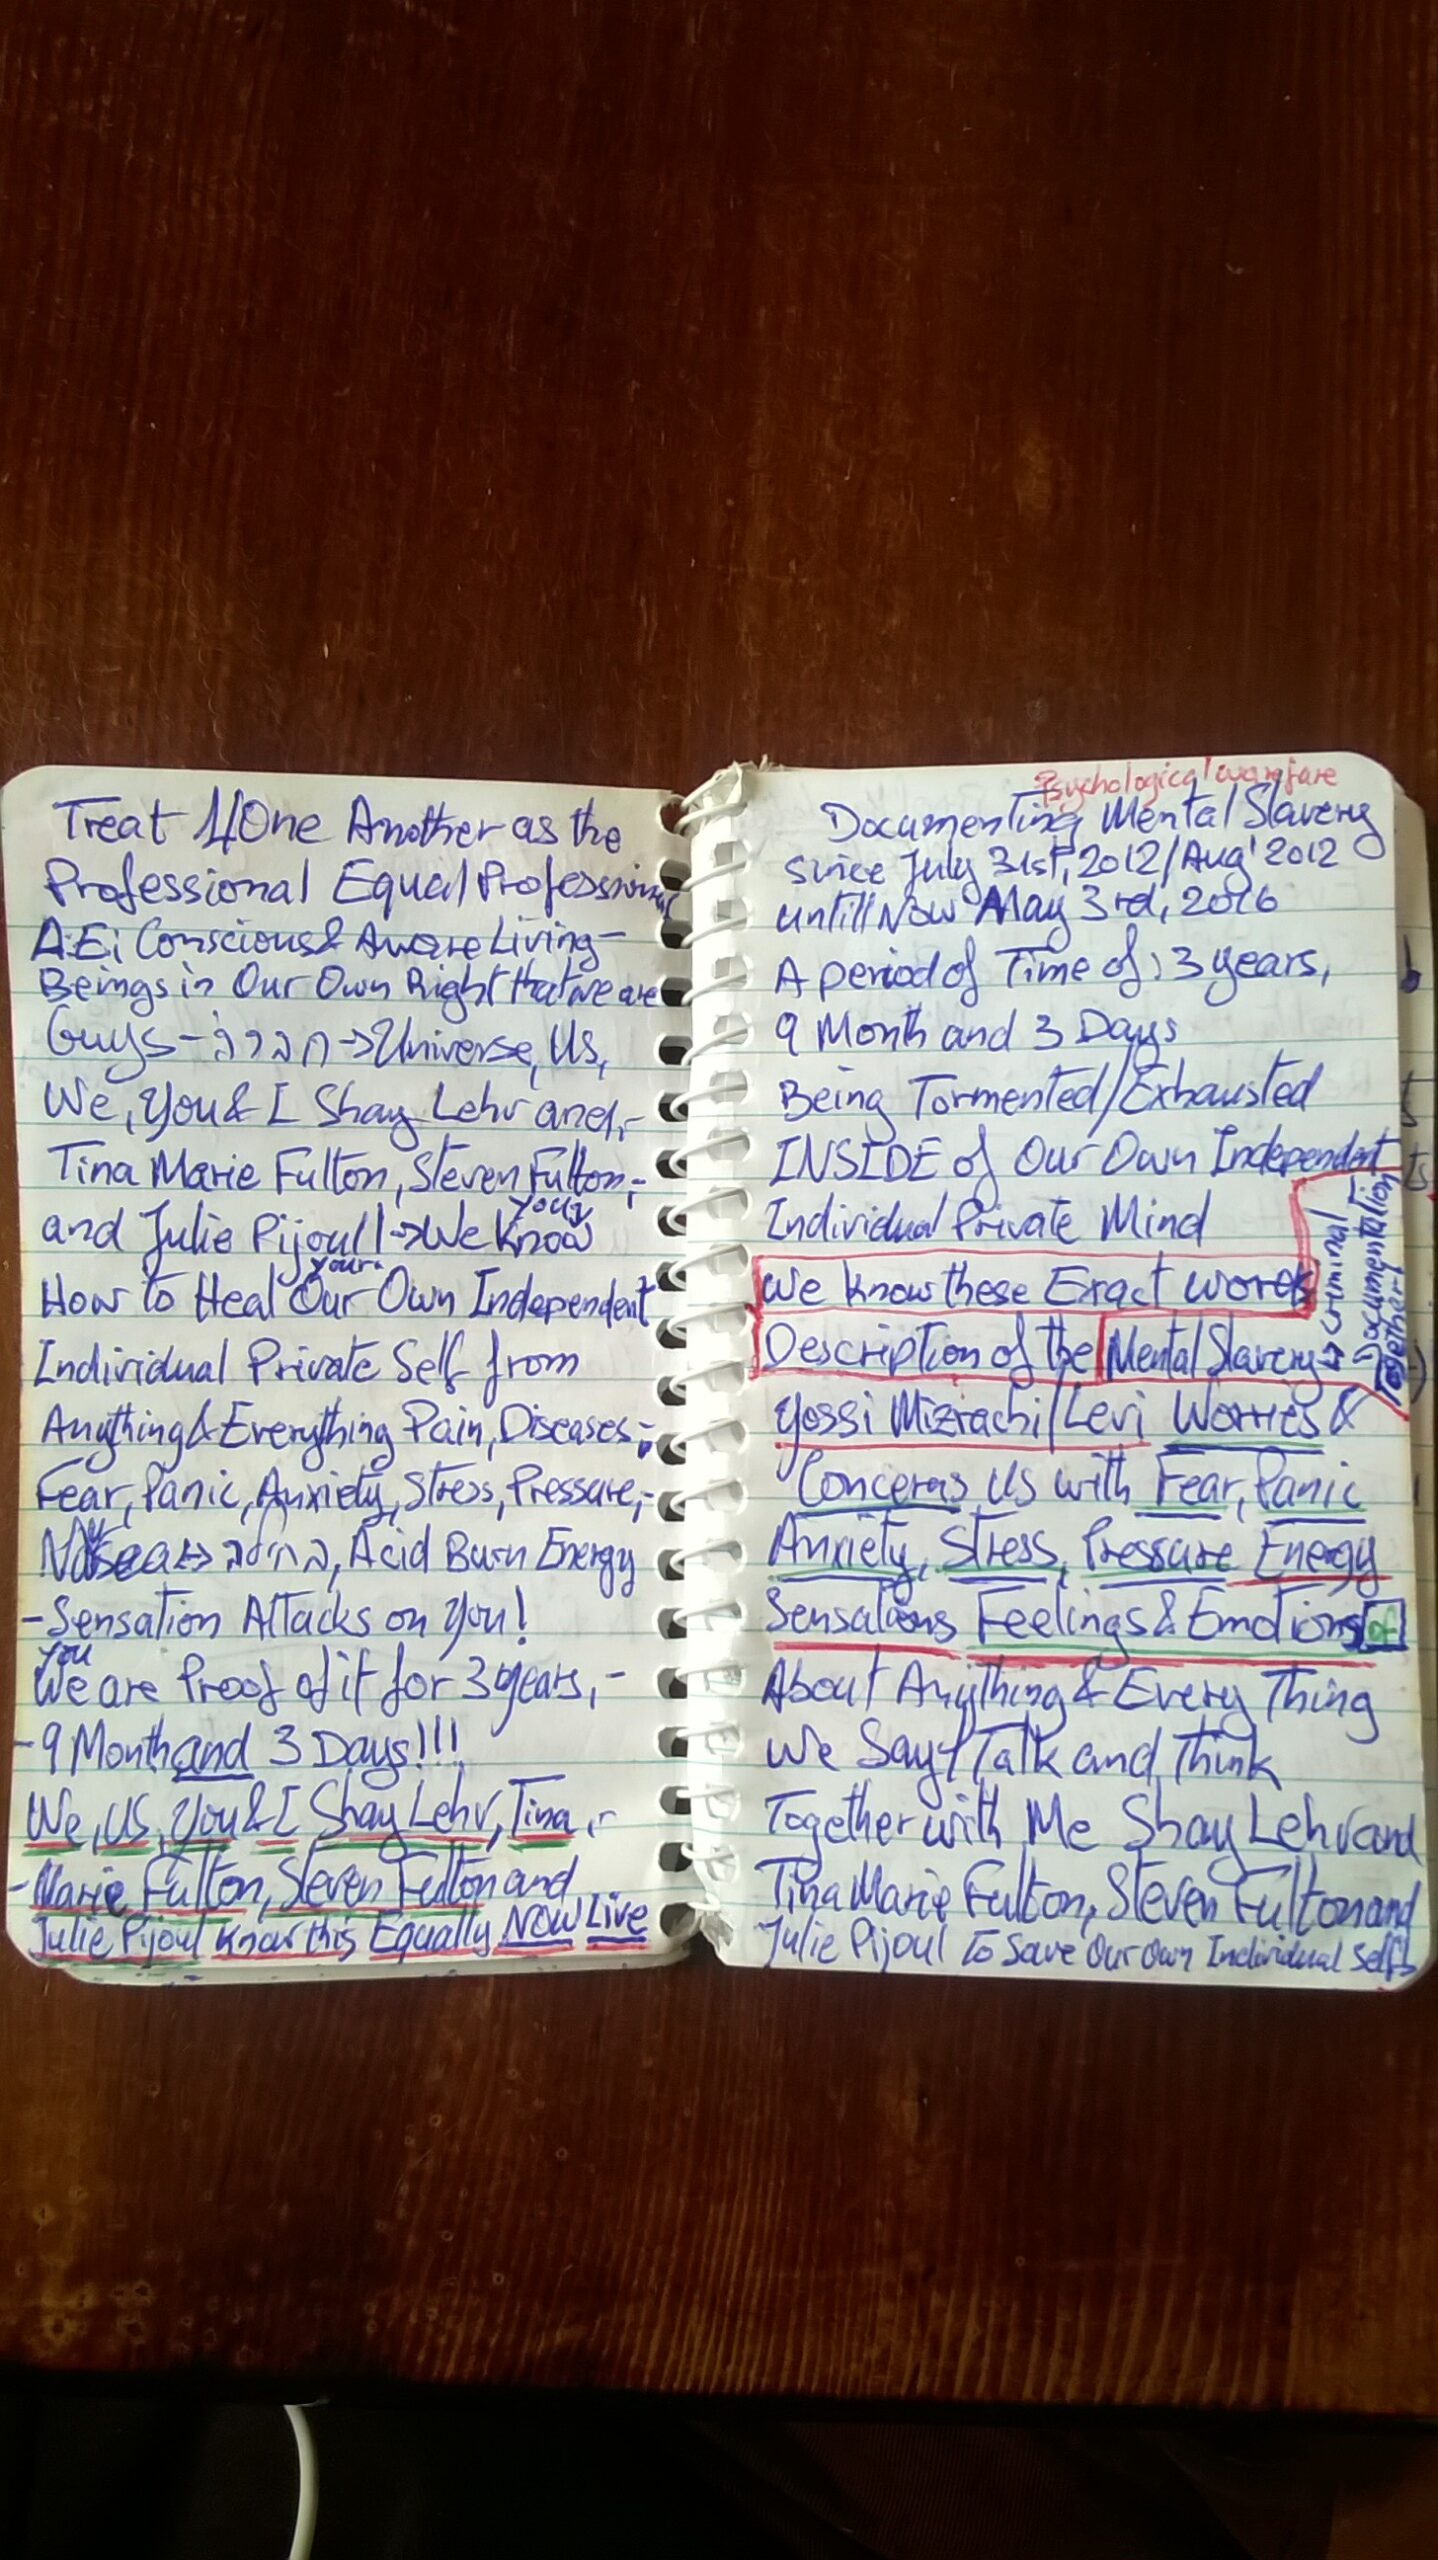 Treat 1/One Another as the
Professional Equal Professional
A.E; Conscious & Aware Living-
Beings in Our Own Right that we are
Guys - → Universe, Us,
We, You & I Shay Lehr and,-
Tina Marie Fulton, Steven Fulton,-
your
and Julie Pijoul! → We Know
your
How to Heal Our Own Independent
Individual Private Self from
Anything & Everything Pain, Diseases,-
Fear, Panic, Anxiety, Stress, Pressure,-
Nausea → בחילה, Acid Burn Energy
-Sensation Attacks on You!
You
We are Proof of it for 3 years,-
-9 Month and 3 Days!!!
We, US, You & I Shay Lehr, Tina,-
-Marie Fulton, Steven Fulton and
Julie Pijoul Know this Equally NOW Live
Psychological warefare
Documenting Mental Slavery
since July 31st, 2012/Aug' 2012
untill Now May 3rd, 2016
A period of Time of: 3 years,
9 Month and 3 Days
Being Tormented/Exhausted
INSIDE of Our Own Independent
Individual Private Mind
We know these Exact words
Description of the Mental Slavery →
Criminal
Documentation
Together!
Yossi Mizrachi/Levi Worries &
Concerns Us with Fear, Panic
Anxiety, Stress, Pressure Energy
Sensations Feelings & Emotions of
About Anything & Every Thing
We Say/Talk and Think
Together with Me Shay Lehr and
Tina Marie Fulton, Steven Fulton and
Julie Pijoul To Save Our Own Individual Selfs